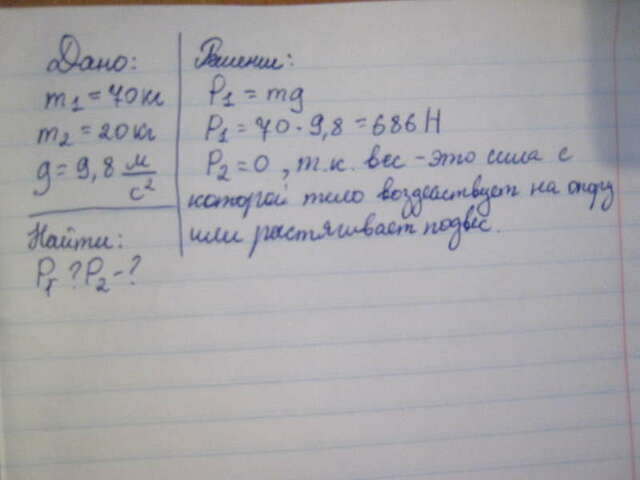 Дано:
m₁ = 70 кг
m₂ = 20 кг
g = 9,8 м/с²
Найти:
P₁ ? P₂ - ?
Решение:
P₁ = mg
P₁ = 70 · 9,8 = 686 Н
P₂ = 0, т.к. вес - это сила с
которой тело воздействует на опору
или растягивает подвес.